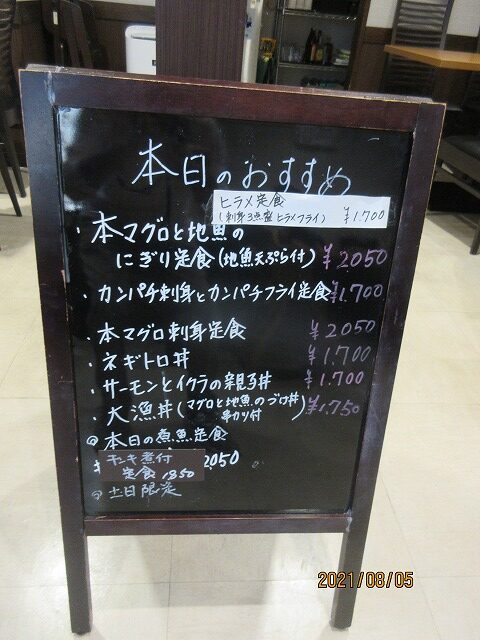 本日のおすすめ
ヒラメ定食
(刺身3点盛 ヒラメフライ) ¥1.700
・本マグロと地魚の
にぎり定食(地魚天ぷら付) ¥2050
・カンパチ刺身とカンパチフライ定食 ¥1.700
・本マグロ刺身定食 ¥2050
・ネギトロ丼 ¥1.700
・サーモンとイクラの親子丼 ¥1.700
・大漁丼(マグロと地魚のブロ丼 串カツ付) ¥1.750
◎本日の煮魚定食
煮付
定食 1850
2,050
◎土日限定
2021/08/05